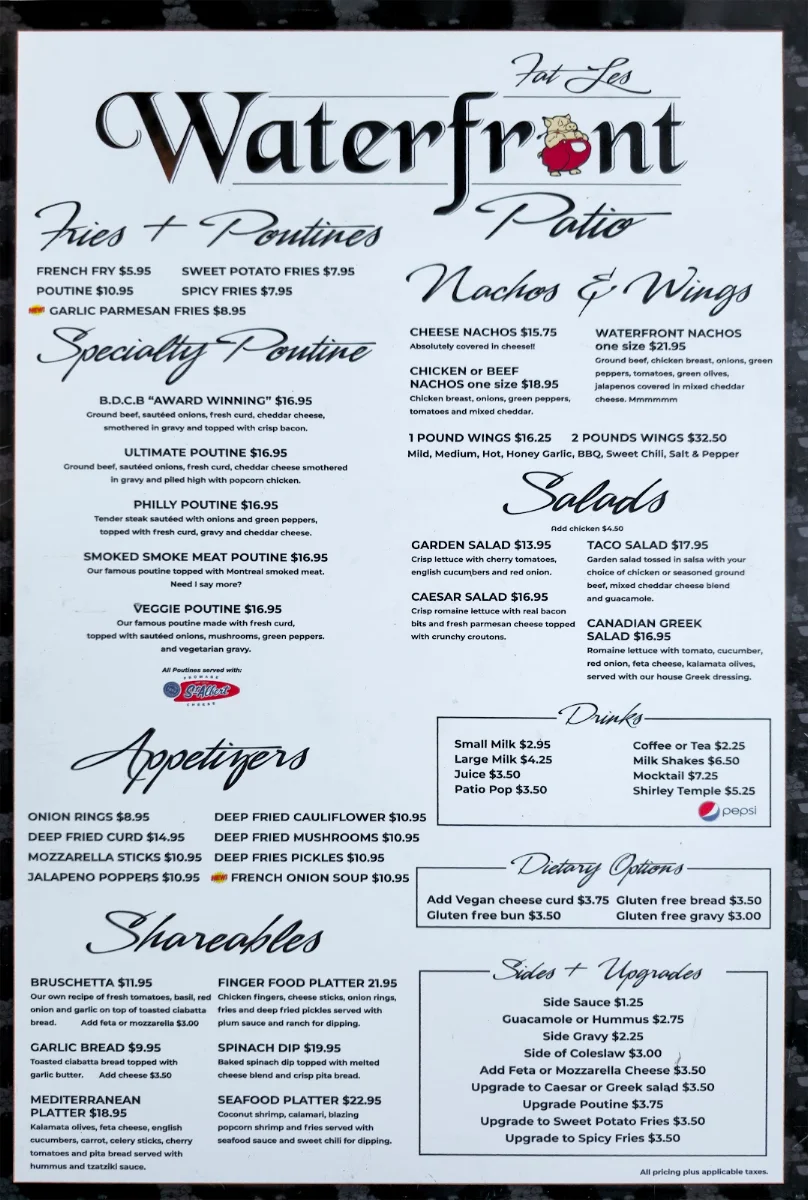 Fat Les
Waterfront
Patio
Fries + Poutines
FRENCH FRY $5.95 SWEET POTATO FRIES $7.95
POUTINE $10.95 SPICY FRIES $7.95
NEW! GARLIC PARMESAN FRIES $8.95
Specialty Poutine
B.D.C.B “AWARD WINNING” $16.95
Ground beef, sautéed onions, fresh curd, cheddar cheese,
smothered in gravy and topped with crisp bacon.
ULTIMATE POUTINE $16.95
Ground beef, sautéed onions, fresh curd, cheddar cheese smothered
in gravy and piled high with popcorn chicken.
PHILLY POUTINE $16.95
Tender steak sautéed with onions and green peppers,
topped with fresh curd, gravy and cheddar cheese.
SMOKED SMOKE MEAT POUTINE $16.95
Our famous poutine topped with Montreal smoked meat.
Need I say more?
VEGGIE POUTINE $16.95
Our famous poutine made with fresh curd,
topped with sautéed onions, mushrooms, green peppers.
and vegetarian gravy.
All Poutines served with:
FROMAGE
St-Albert
CHEESE
Appetizers
ONION RINGS $8.95 DEEP FRIED CAULIFLOWER $10.95
DEEP FRIED CURD $14.95 DEEP FRIED MUSHROOMS $10.95
MOZZARELLA STICKS $10.95 DEEP FRIES PICKLES $10.95
JALAPENO POPPERS $10.95 NEW! FRENCH ONION SOUP $10.95
Shareables
BRUSCHETTA $11.95
Our own recipe of fresh tomatoes, basil, red
onion and garlic on top of toasted ciabatta
bread. Add feta or mozzarella $3.00
GARLIC BREAD $9.95
Toasted ciabatta bread topped with
garlic butter. Add cheese $3.50
MEDITERRANEAN
PLATTER $18.95
Kalamata olives, feta cheese, english
cucumbers, carrot, celery sticks, cherry
tomatoes and pita bread served with
hummus and tzatziki sauce.
FINGER FOOD PLATTER 21.95
Chicken fingers, cheese sticks, onion rings,
fries and deep fried pickles served with
plum sauce and ranch for dipping.
SPINACH DIP $19.95
Baked spinach dip topped with melted
cheese blend and crisp pita bread.
SEAFOOD PLATTER $22.95
Coconut shrimp, calamari, blazing
popcorn shrimp and fries served with
seafood sauce and sweet chili for dipping.
Nachos & Wings
CHEESE NACHOS $15.75
Absolutely covered in cheese!!
CHICKEN or BEEF
NACHOS one size $18.95
Chicken breast, onions, green peppers,
tomatoes and mixed cheddar.
WATERFRONT NACHOS
one size $21.95
Ground beef, chicken breast, onions, green
peppers, tomatoes, green olives,
jalapenos covered in mixed cheddar
cheese. Mmmmmm
1 POUND WINGS $16.25 2 POUNDS WINGS $32.50
Mild, Medium, Hot, Honey Garlic, BBQ, Sweet Chili, Salt & Pepper
Salads
Add chicken $4.50
GARDEN SALAD $13.95
Crisp lettuce with cherry tomatoes,
english cucumbers and red onion.
CAESAR SALAD $16.95
Crisp romaine lettuce with real bacon
bits and fresh parmesan cheese topped
with crunchy croutons.
TACO SALAD $17.95
Garden salad tossed in salsa with your
choice of chicken or seasoned ground
beef, mixed cheddar cheese blend
and guacamole.
CANADIAN GREEK
SALAD $16.95
Romaine lettuce with tomato, cucumber,
red onion, feta cheese, kalamata olives,
served with our house Greek dressing.
Drinks
Small Milk $2.95 Coffee or Tea $2.25
Large Milk $4.25 Milk Shakes $6.50
Juice $3.50 Mocktail $7.25
Patio Pop $3.50 Shirley Temple $5.25
pepsi
Dietary Options
Add Vegan cheese curd $3.75 Gluten free bread $3.50
Gluten free bun $3.50 Gluten free gravy $3.00
Sides + Upgrades
Side Sauce $1.25
Guacamole or Hummus $2.75
Side Gravy $2.25
Side of Coleslaw $3.00
Add Feta or Mozzarella Cheese $3.50
Upgrade to Caesar or Greek salad $3.50
Upgrade Poutine $3.75
Upgrade to Sweet Potato Fries $3.50
Upgrade to Spicy Fries $3.50
All pricing plus applicable taxes.